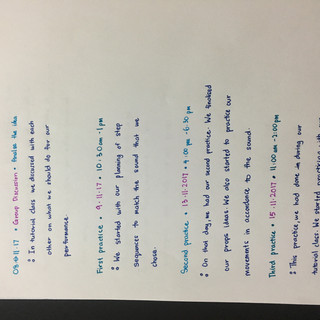 03•11•17 • Group Discussion • Finalise the idea
: In tutorial class we discussed with each
other on what we should do for our
performance.
First practice • 9•11•17 • 10:30am-1pm
: We started with our planning of step
sequences to match the sound that we
chose.
Second practice • 13•11•2017 • 4:00 pm-6:30 pm
: On that day, we had our second practice. We finalized
our props ideas. We also started to practice our
movements in accordance to the sound.
Third practice • 15•11•2017 • 11:00am-2:00pm
: This practice, we had done in during our
tutorial class. We started practicing with our